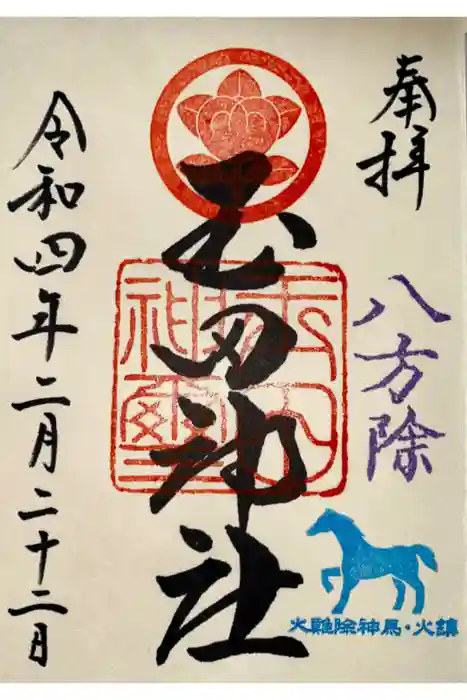 奉拝
八方除
玉田神社
令和四年二月二十二日
火難除神馬・火鎮